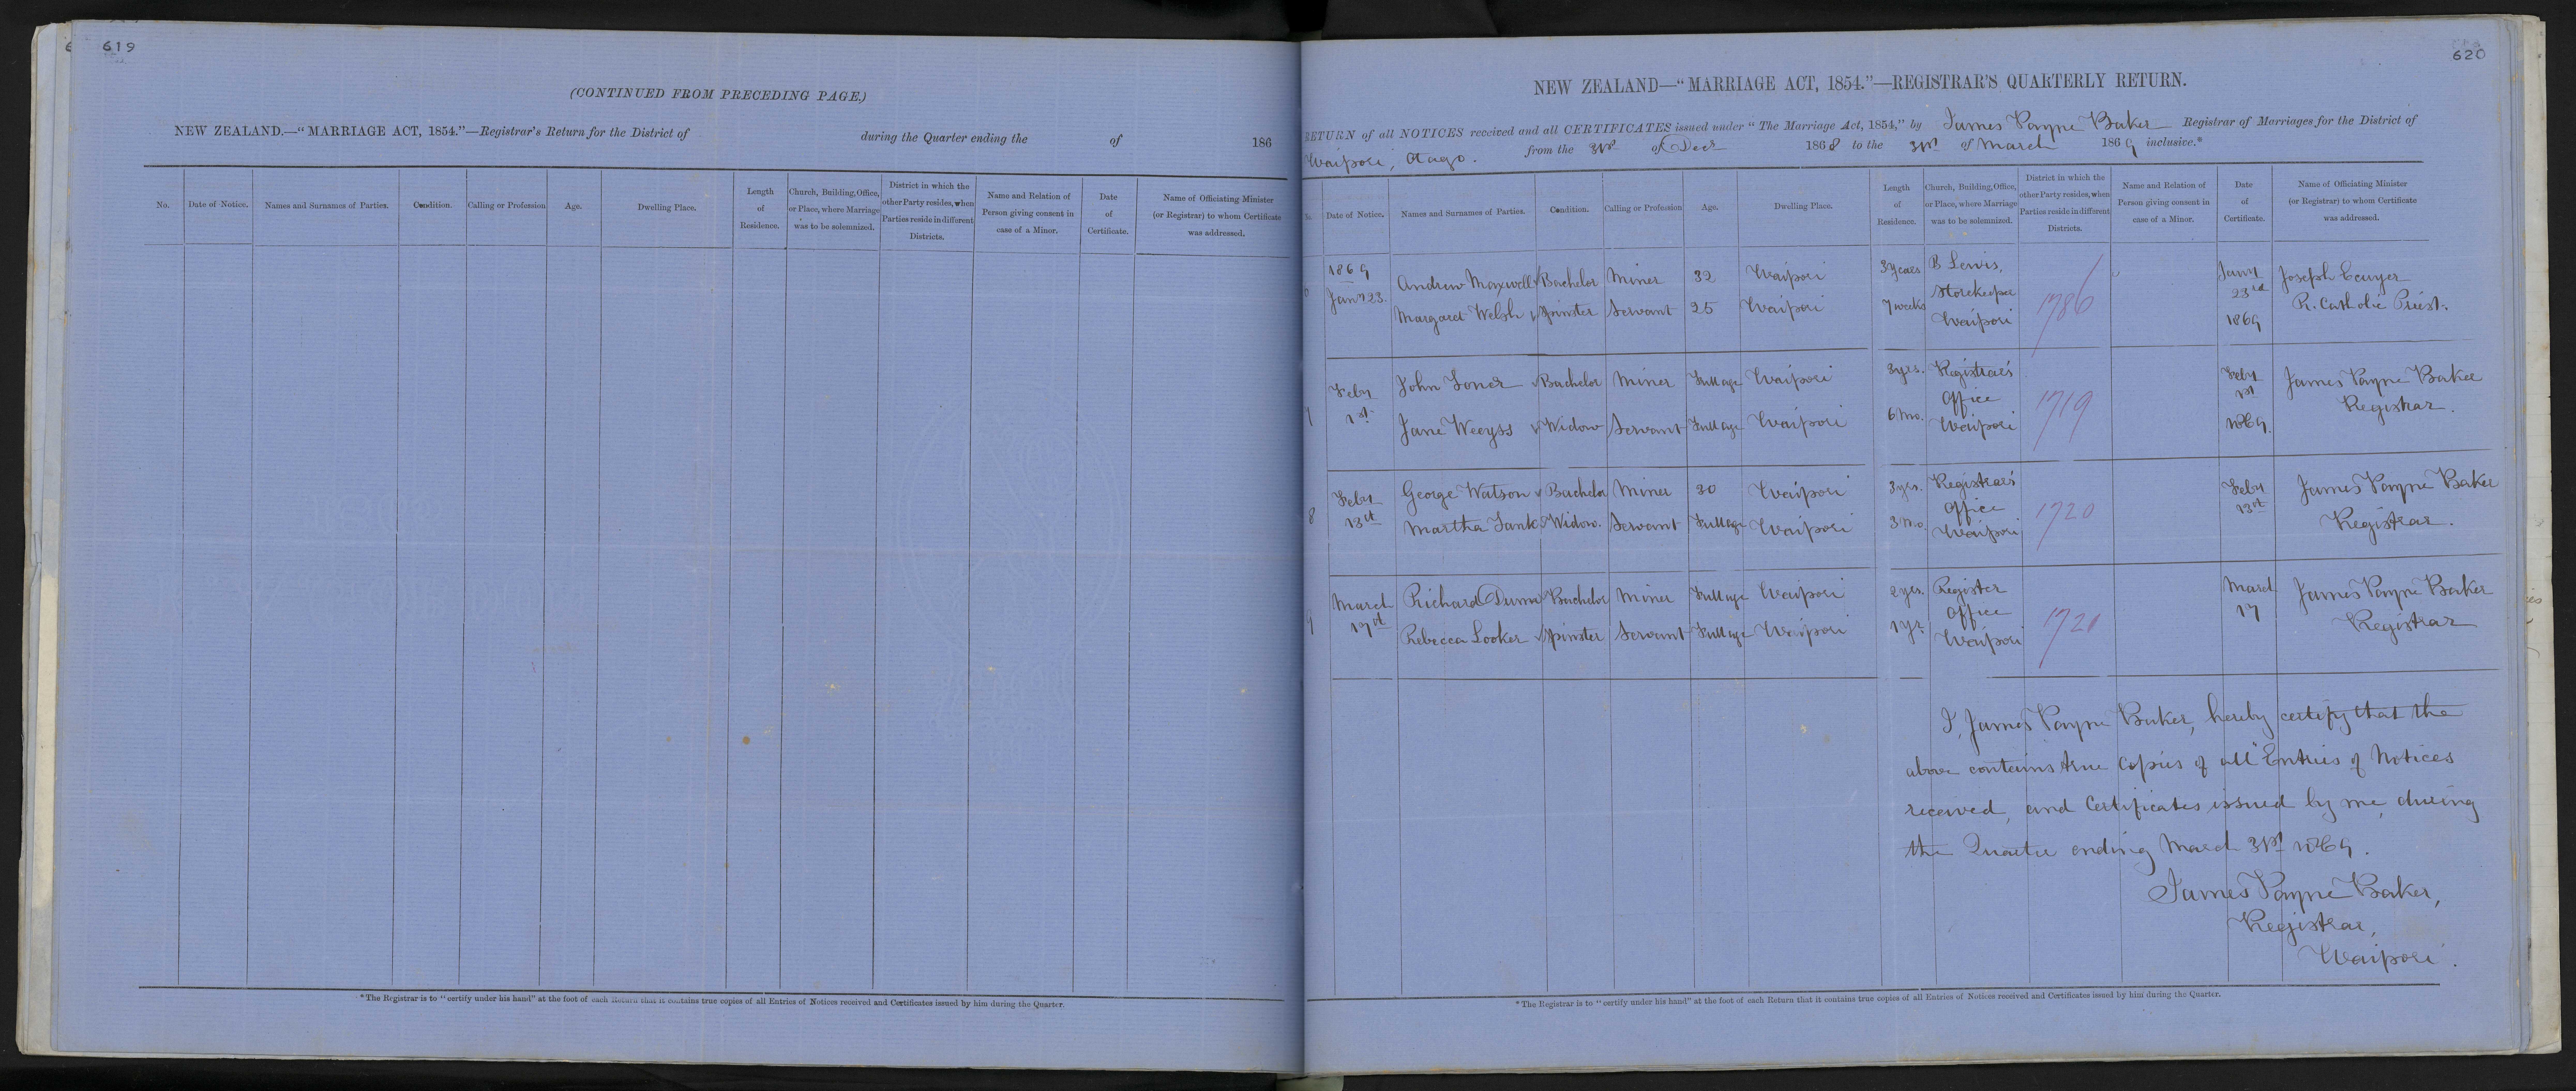 619
(CONTINUED FROM PRECEDING PAGE.)
NEW ZEALAND.—"MARRIAGE ACT, 1854."—Registrar's Return for the District of during the Quarter ending the of 186
No. Date of Notice. Names and Surnames of Parties. Condition. Calling or Profession Age. Dwelling Place. Length of Residence. Church, Building, Office, or Place, where Marriage was to be solemnized. District in which the other Party resides, when Parties reside in different Districts. Name and Relation of Person giving consent in case of a Minor. Date of Certificate. Name of Officiating Minister (or Registrar) to whom Certificate was addressed.
*The Registrar is to "certify under his hand" at the foot of each Return that it contains true copies of all Entries of Notices received and Certificates issued by him during the Quarter.
620
NEW ZEALAND—"MARRIAGE ACT, 1854."—REGISTRAR'S QUARTERLY RETURN.
RETURN of all NOTICES received and all CERTIFICATES issued under "The Marriage Act, 1854," by James Payne Baker Registrar of Marriages for the District of
Waipori, Otago. from the 31st of Decr 1868 to the 31st of March 1869 inclusive.*
Date of Notice. Names and Surnames of Parties. Condition. Calling or Profession Age. Dwelling Place. Length of Residence. Church, Building, Office, or Place, where Marriage was to be solemnized. District in which the other Party resides, when Parties reside in different Districts. Name and Relation of Person giving consent in case of a Minor. Date of Certificate. Name of Officiating Minister (or Registrar) to whom Certificate was addressed.
1869 Jany 23. Andrew Maxwell Bachelor Miner 32 Waipori 3 years B Lewis, Storekeeper Waipori 1786 Jany 23rd 1869 Joseph Ecuyer R. Catholic Priest.
Margaret Welsh Spinster Servant 25 Waipori 7 weeks
7 Feby 1st John Jones Bachelor Miner Full age Waipori 3 yrs. Registrar's Office Waipori 1719 Feby 1st 1869. James Payne Baker Registrar.
Jane Weeyss Widow Servant Full age Waipori 6 Mo.
8 Feby 13th George Watson Bachelor Miner 30 Waipori 3 yrs. Registrar's Office Waipori 1720 Feby 13th James Payne Baker Registrar.
Martha Widow. Servant Full age Waipori 3 Mo
9 March 17th Richard Bachelor Miner Full age Waipori 2 yrs. Register Office Waipori 1721 March 17 James Payne Baker Registrar
Rebecca Looker Spinster Servant Full age Waipori 1 yr
I, James Payne Baker, hereby certify that the
above contains true Copies of all Entries of Notices
received, and Certificates issued by me, during
the Quarter ending March 31st 1869.
James Payne Baker,
Registrar,
Waipori.
*The Registrar is to "certify under his hand" at the foot of each Return that it contains true copies of all Entries of Notices received and Certificates issued by him during the Quarter.